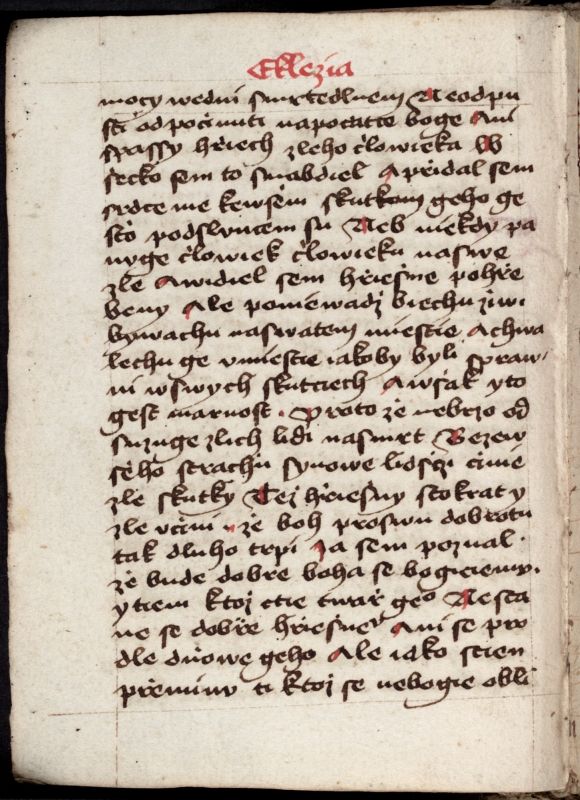 Eklezia
mocy wedni smrtedlnem Neodpu
sti odpočinuti napočatce boge Ani
spassy hřiech zleho člowieka W
ssecko sem to snabdiel A přidal sem
srdce me kewsem skutkom geho ge
sto podsluncem su Neb niekdy pa
nuge člowiek člowieku naswe
zle A widiel sem hřiesne pohře
beny Ale poniewadz biechu ziwi
bywachu naswatem miestie A chwa
lechu ge wmiestie iakoby byli spraw
ni wswych skutciech A wsak yto
gest marnost Proto že nebrzo od
suzuge zlich lidi nasmrt Bezew
seho strachu synowe lidsczi činie
zle skutky Tez hřiesny stokrat y
zle včini že boh proswu dobrotu
tak dluho trpi Ja sem poznal
že bude dobre boha se bogiciemu
ytiem ktoz ctie twař geo Nesta
ne se dobře hřiesne Ani se pro
dle dnowe geho Ale iako stien
přeminu ti ktoz se nebogie obli